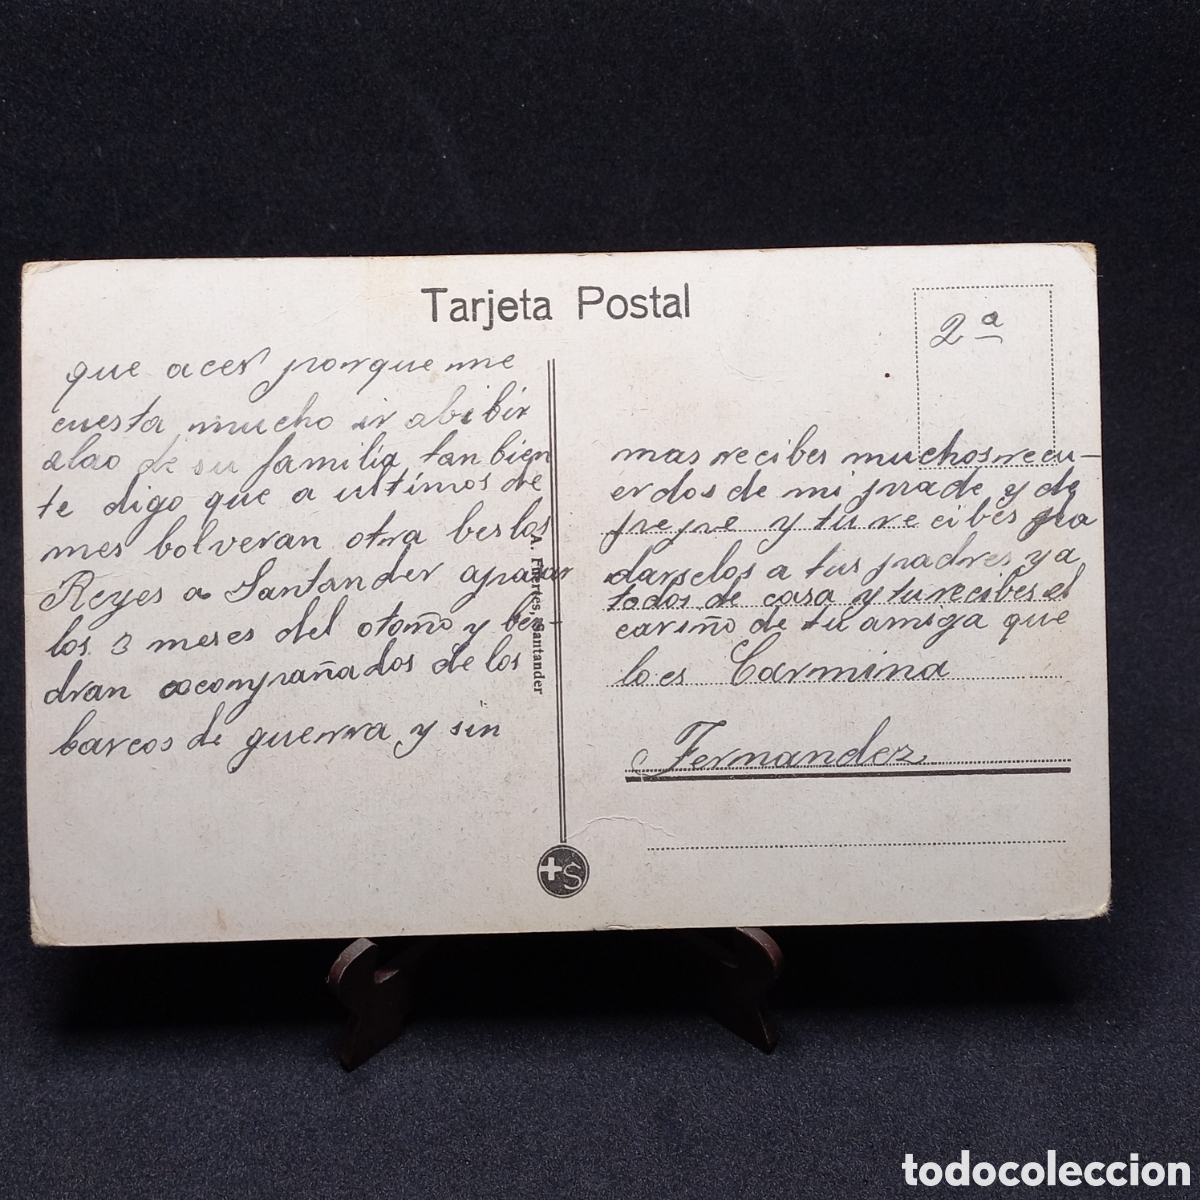 Tarjeta Postal
2ª
que acer porque me
cuesta mucho ir abibir
alao de su familia tanbien
te digo que a ultimos de
mes bolveran otra bes los
Reyes a Santander apasar
los 3 meses del otoño y ben-
dran acocompañados de los
barcos de guerra y sin
A. Fuertes, Santander
mas recibes muchos recu-
erdos de mi prade y de
pepe y tu recibes
darselos a tus padres y a
todos de casa y tu recibes el
cariño de tu amiga que
lo es Carmina
Fernandez
+S
todocoleccion